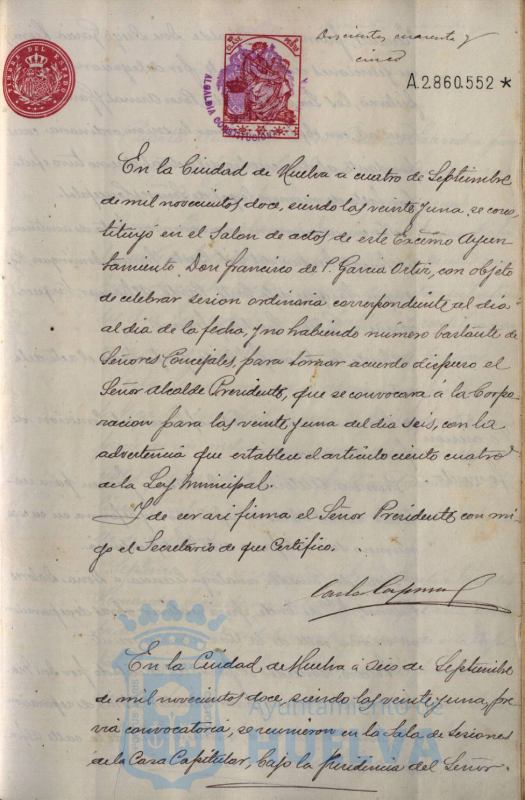 TIMBRE DEL ESTADO
1 PTA
ALCALDIA CONSTITUCIONAL
Doscientos cuarenta y
cinco
A.2.860.552 *
En la Ciudad de Huelva á cuatro de Septiembre
de mil novecientos doce, siendo las veinte y una, se cons
tituyó en el Salon de actos de este Excmo Ayun
tamiento, Don Francisco de P. Garcia Ortiz, con objeto
de celebrar sesion ordinaria correspondiente al dia
al dia de la fecha, y no habiendo número bastante de
Señores Concejales, para tomar acuerdo dispuso el
Señor Alcalde Presidente, que se convocara á la Corpo
racion para las veinte y una del dia seis, con la
advertencia que establece el articulo ciento cuatro
de la Ley Municipal.
Y de ser asi firma el Señor Presidente con mi
go el Secretario de que Certifico.
En la Ciudad de Huelva á seis de Septiembre
de mil novecientos doce, siendo las veinte y una, pre
via convocatoria, se reunieron en la Sala de Sesiones
de la Casa Capitular, bajo la Presidencia del Señor
Ayuntamiento de
HUELVA